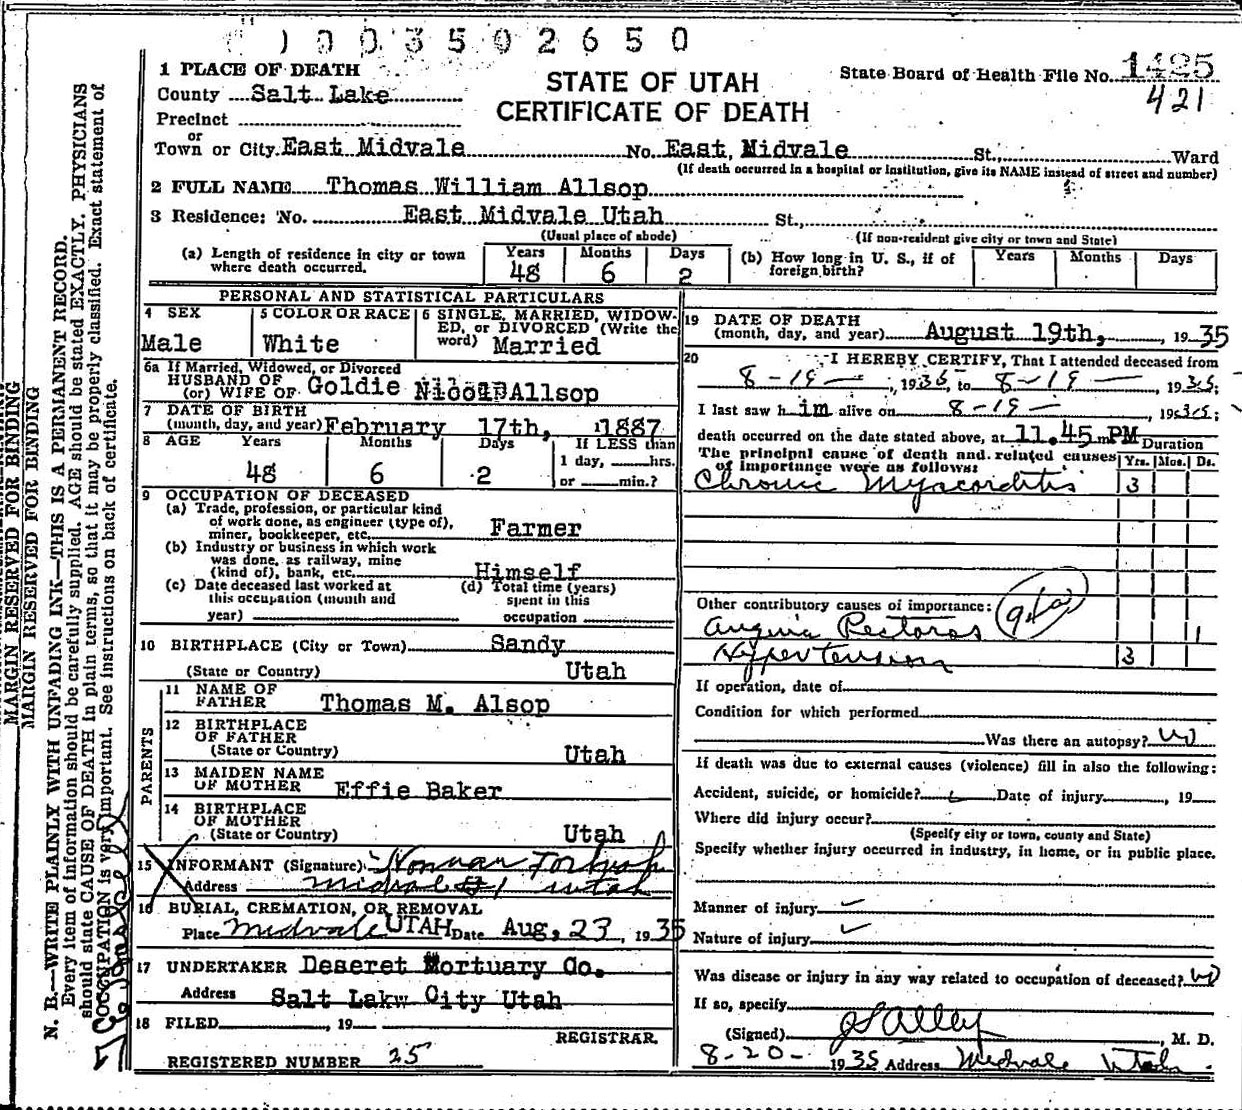 003502650
1 PLACE OF DEATH
STATE OF UTAH
CERTIFICATE OF DEATH
State Board of Health File No. 1425
421
County Salt Lake
Precinct
or
Town or City. East Midvale No. East, Midvale St., Ward
(If death occurred in a hospital or institution, give its NAME instead of street and number)
2 FULL NAME Thomas William Allsop
3 Residence: No. East Midvale Utah St.,
(Usual place of abode) (If non-resident give city or town and State)
(a) Length of residence in city or town where death occurred. Years 48 Months 6 Days 2
(b) How long in U. S., if of foreign birth? Years Months Days
PERSONAL AND STATISTICAL PARTICULARS
4 SEX Male
5 COLOR OR RACE White
6 SINGLE, MARRIED, WIDOWED, or DIVORCED (Write the word) Married
6a If Married, Widowed, or Divorced
HUSBAND OF
(or) WIFE OF Goldie Allsop
7 DATE OF BIRTH
(month, day, and year) February 17th, 1887
8 AGE Years 48 Months 6 Days 2 If LESS than
1 day, hrs.
or min.?
9 OCCUPATION OF DECEASED
(a) Trade, profession, or particular kind
of work done, as engineer (type of),
miner, bookkeeper, etc. Farmer
(b) Industry or business in which work
was done, as railway, mine
(kind of), bank, etc. Himself
(c) Date deceased last worked at
this occupation (month and
year)
(d) Total time (years)
spent in this
occupation
10 BIRTHPLACE (City or Town) Sandy
(State or Country) Utah
PARENTS
11 NAME OF
FATHER Thomas M. Alsop
12 BIRTHPLACE
OF FATHER
(State or Country) Utah
13 MAIDEN NAME
OF MOTHER Effie Baker
14 BIRTHPLACE
OF MOTHER
(State or Country) Utah
15 INFORMANT (Signature) Norman
Address Midvale #1 Utah
16 BURIAL, CREMATION, OR REMOVAL
Place Midvale UTAH Date Aug, 23, 1935
17 UNDERTAKER Deseret Mortuary Co.
Address Salt Lakw City Utah
18 FILED , 19
REGISTRAR.
REGISTERED NUMBER 25
19 DATE OF DEATH
(month, day, and year) August 19th, 1935
20 I HEREBY CERTIFY, That I attended deceased from
8-19-, 1935, to 8-19-, 1935;
I last saw him alive on 8-19-, 1935;
death occurred on the date stated above, at 11.45 m PM
The principal cause of death and related causes
of importance were as follows:
Duration
Yrs. Mos. Ds.
Chronic Myocorditis 3
Other contributory causes of importance:
Anguia Pectoras 1
Hypertension 3
If operation, date of
Condition for which performed
Was there an autopsy? no
If death was due to external causes (violence) fill in also the following:
Accident, suicide, or homicide? Date of injury , 19
Where did injury occur?
(Specify city or town, county and State)
Specify whether injury occurred in industry, in home, or in public place.
Manner of injury
Nature of injury
Was disease or injury in any way related to occupation of deceased? no
If so, specify
(Signed) , M. D.
8-20- 1935 Address Midvale Utah
MARGIN RESERVED FOR BINDING
MARGIN RESERVED FOR BINDING
N. B.—WRITE PLAINLY WITH UNFADING INK—THIS IS A PERMANENT RECORD.
Every item of information should be carefully supplied. AGE should be stated EXACTLY. PHYSICIANS
should state CAUSE OF DEATH in plain terms, so that it may be properly classified. Exact statement of
OCCUPATION is very important. See instructions on back of certificate.